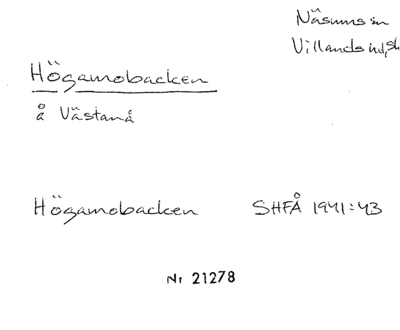 Näsums sn
Villands hd, sk
Högamobacken
å Västanå
Högamobacken SHFÅ 1941:43
Nr 21278